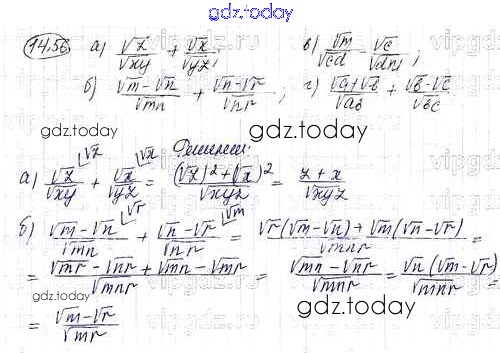 gdz.today
14.56 а) √z/√xy + √x/√yz; в) √m/√cd - √c/√dn;
б) (√m-√n)/√mn + (√n-√r)/√nr; г) (√a+√b)/√ab + (√b-√c)/√bc
gdz.today
Решение:
gdz.today
а) √z/√xy + √x/√yz = ((√z)²+(√x)²)/√xyz = (z+x)/√xyz
б) (√m-√n)/√mn + (√n-√r)/√nr = (√r(√m-√n)+√m(√n-√r))/√mnr =
= (√mr-√nr+√mn-√mr)/√mnr = (√mn-√nr)/√mnr = √n(√m-√r)/√mnr =
= (√m-√r)/√mr
gdz.today
gdz.today